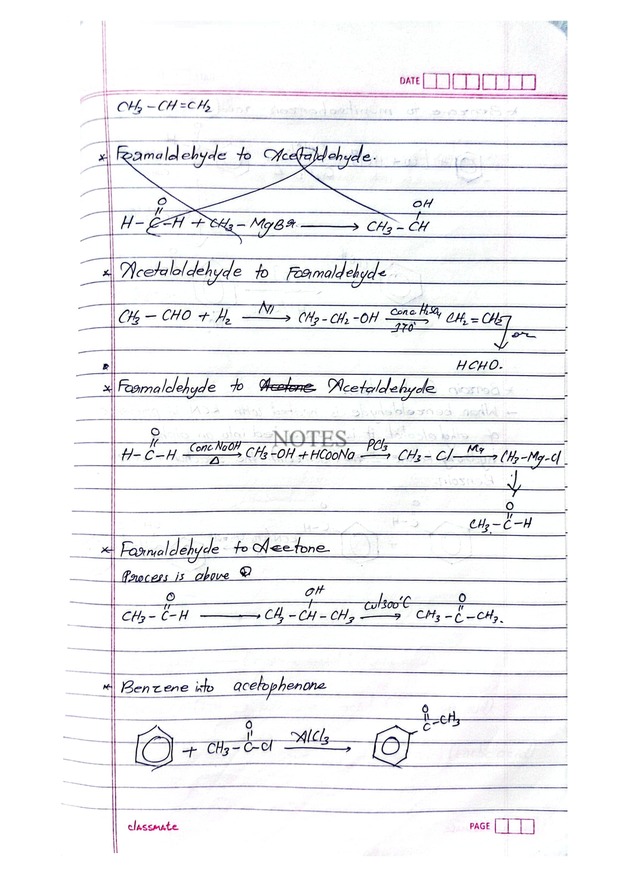 DATE
CH3 – CH = CH2
* Formaldehyde to Acetaldehyde.
O OH
H – C – H + CH3 – MgBr ⟶ CH3 – CH
* Acetaldehyde to Formaldehyde
CH3 – CHO + H2 —Ni→ CH3 – CH2 – OH —Conc H2SO4 / 370°→ CH2 = CH2
or
HCHO.
* Formaldehyde to Acetone Acetaldehyde
NOTES
O
H – C – H —Conc NaOH / Δ→ CH3 – OH + HCOONa —PCl3→ CH3 – Cl —Mg→ CH3 – Mg – Cl
O
CH3 – C – H
* Formaldehyde to Acetone
Process is above
O OH O
CH3 – C – H ⟶ CH3 – CH – CH3 —Cu/300°C→ CH3 – C – CH3.
* Benzene into acetophenone
O O
+ CH3 – C – Cl —AlCl3→ C – CH3
classmate
PAGE